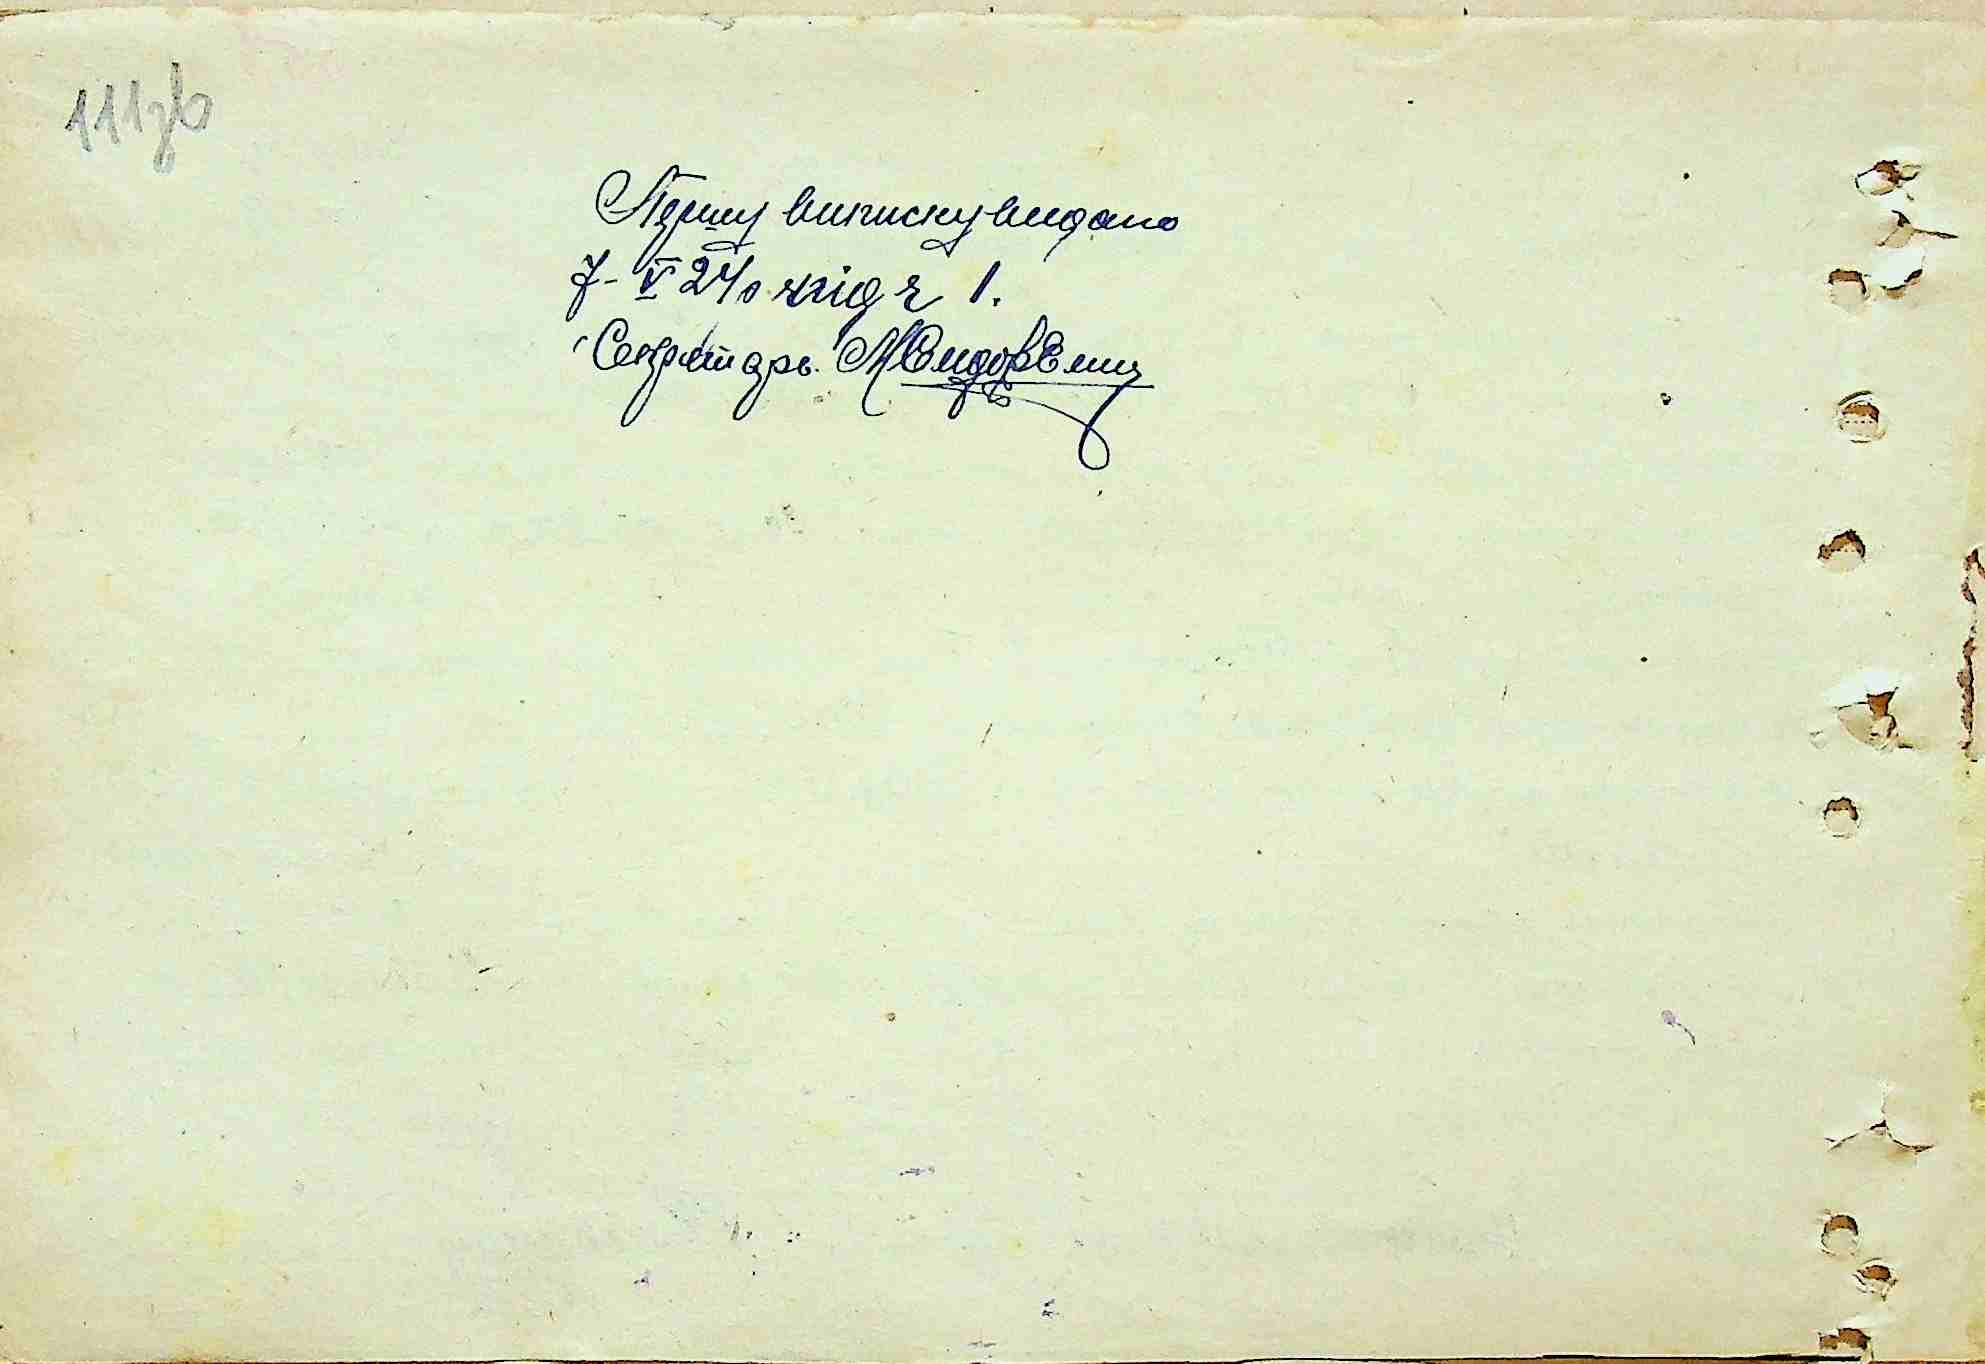 111зв
Першу виписку видано
7-V 24 о під ч 1.
Секретарь